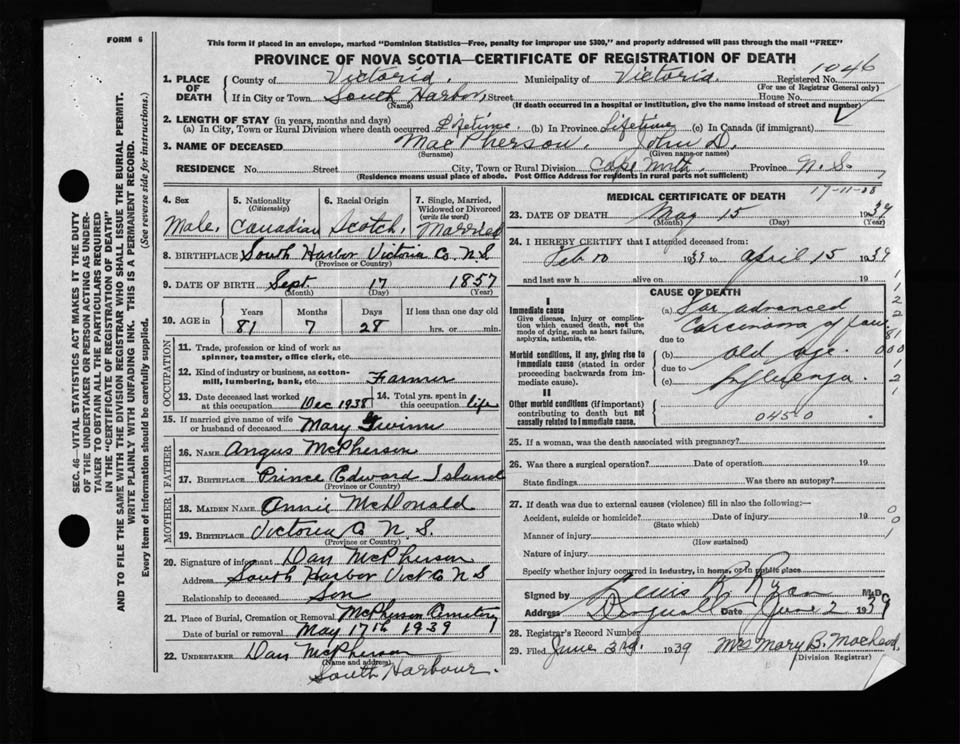 FORM 6
This form if placed in an envelope, marked "Dominion Statistics—Free, penalty for improper use $300," and properly addressed will pass through the mail "FREE"
PROVINCE OF NOVA SCOTIA—CERTIFICATE OF REGISTRATION OF DEATH
1046
1. PLACE OF DEATH
County of Victoria. Municipality of Victoria. Registered No.
(For use of Registrar General only)
If in City or Town South Harbor, Street House No.
(Name) (If death occurred in a hospital or institution, give the name instead of street and number)
2. LENGTH OF STAY (in years, months and days)
(a) In City, Town or Rural Division where death occurred Lifetime (b) In Province Lifetime (c) In Canada (if immigrant)
3. NAME OF DECEASED MacPherson, John D.
(Surname) (Given name or names)
RESIDENCE No. Street City, Town or Rural Division Cape North. Province N. S.
(Residence means usual place of abode. Post Office Address for residents in rural parts not sufficient)
4. Sex Male.
5. Nationality (Citizenship) Canadian
6. Racial Origin Scotch.
7. Single, Married, Widowed or Divorced (write the word) Married
8. BIRTHPLACE South Harbor Victoria Co. N.S.
(Province or Country)
9. DATE OF BIRTH Sept. 17 1857
(Month) (Day) (Year)
10. AGE in Years Months Days If less than one day old
81 7 28 hrs. or min.
OCCUPATION
11. Trade, profession or kind of work as spinner, teamster, office clerk, etc.
12. Kind of industry or business, as cotton-mill, lumbering, bank, etc. Farmer
13. Date deceased last worked at this occupation Dec 1938
14. Total yrs. spent in this occupation life
15. If married give name of wife or husband of deceased Mary
FATHER
16. NAME Angus McPherson
17. BIRTHPLACE Prince Edward Island
(Province or Country)
MOTHER
18. MAIDEN NAME Annie McDonald
19. BIRTHPLACE Victoria Co N. S.
(Province or Country)
20. Signature of informant Dan McPherson
Address South Harbor Vict Co N S
Relationship to deceased Son
21. Place of Burial, Cremation or Removal McPherson Cemetery
Date of burial or removal May 17th 1939
22. UNDERTAKER Dan McPherson
(Name and address)
South Harbour.
MEDICAL CERTIFICATE OF DEATH
23. DATE OF DEATH May 15 1939
(Month) (Day) (Year)
24. I HEREBY CERTIFY that I attended deceased from:
Feb 10 1939 to April 15 1939
and last saw h alive on 19
CAUSE OF DEATH
I
Immediate cause
Give disease, injury or complication which caused death, not the mode of dying, such as heart failure, asphyxia, asthenia, etc.
(a) Far advanced
Carcinoma of face
due to
Morbid conditions, if any, giving rise to immediate cause (stated in order proceeding backwards from immediate cause).
(b) old age.
due to
(c) Influenza.
II
Other morbid conditions (if important) contributing to death but not causally related to immediate cause.
0450
25. If a woman, was the death associated with pregnancy?
26. Was there a surgical operation? Date of operation 19
State findings Was there an autopsy?
27. If death was due to external causes (violence) fill in also the following:—
Accident, suicide or homicide? Date of injury 19
(State which)
Manner of injury
(How sustained)
Nature of injury
Specify whether injury occurred in industry, in home, or in public place
Signed by Ryan M.D.
Address Date June 2 1939
28. Registrar's Record Number
29. Filed June 3rd. 1939 Mrs Mary B. MacLeod.
(Division Registrar)
SEC. 46—VITAL STATISTICS ACT MAKES IT THE DUTY
OF THE UNDERTAKER OR PERSON ACTING AS UNDER-
TAKER TO OBTAIN ALL THE PARTICULARS REQUIRED
IN THE "CERTIFICATE OF REGISTRATION OF DEATH"
AND TO FILE THE SAME WITH THE DIVISION REGISTRAR WHO SHALL ISSUE THE BURIAL PERMIT.
WRITE PLAINLY WITH UNFADING INK. THIS IS A PERMANENT RECORD.
Every item of information should be carefully supplied. (See reverse side for instructions.)